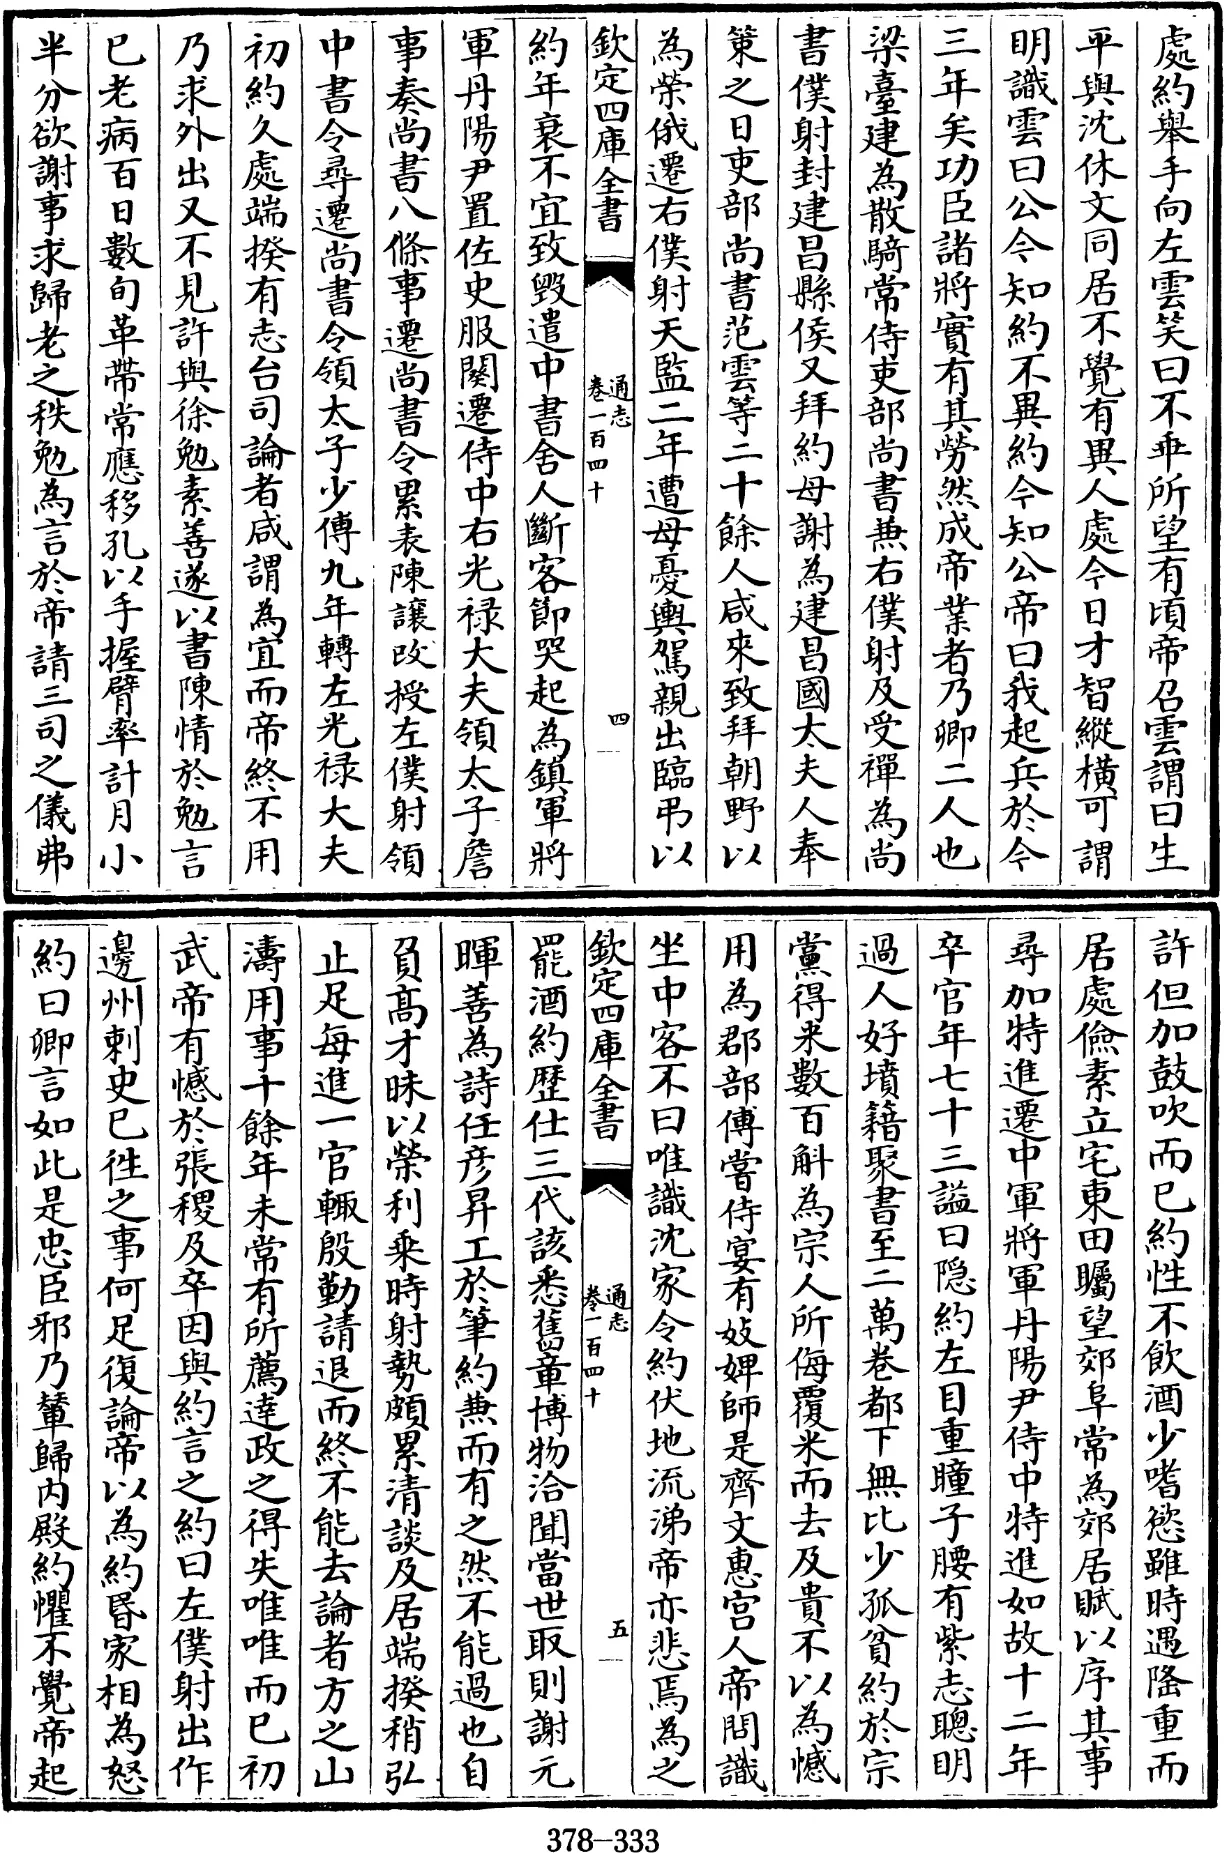 處約舉手向左雲笑曰不乖所望有頃帝召雲謂曰生
平與沈休文同居不覺有異人處今日才智縱橫可謂
明識雲曰公今知約不異約今知公帝曰我起兵於今
三年矣功臣諸將實有其勞然成帝業者乃卿二人也
梁臺建為散騎常侍吏部尚書兼右僕射及受禪為尚
書僕射封建昌縣侯又拜約母謝為建昌國太夫人奉
策之日吏部尚書范雲等二十餘人咸來致拜朝野以
為榮俄遷右僕射天監二年遭母憂輿駕親出臨弔以
欽定四庫全書
通志
卷一百四十
四
約年衰不宜致毀遣中書舍人斷客節哭起為鎮軍將
軍丹陽尹置佐史服闋遷侍中右光祿大夫領太子詹
事奏尚書八條事遷尚書令累表陳讓改授左僕射領
中書令尋遷尚書令領太子少傅九年轉左光祿大夫
初約久處端揆有志台司論者咸謂為宜而帝終不用
乃求外出又不見許與徐勉素善遂以書陳情於勉言
已老病百日數旬革帶常應移孔以手握臂率計月小
半分欲謝事求歸老之秩勉為言於帝請三司之儀弗
許但加鼓吹而已約性不飲酒少嗜慾雖時遇隆重而
居處儉素立宅東田矚望郊阜常為郊居賦以序其事
尋加特進遷中軍將軍丹陽尹侍中特進如故十二年
卒官年七十三謚曰隱約左目重瞳子腰有紫志聰明
過人好墳籍聚書至二萬卷都下無比少孤貧約於宗
黨得米數百斛為宗人所侮覆米而去及貴不以為憾
用為郡部傅嘗侍宴有妓婢師是齊文惠宮人帝問識
坐中客不曰唯識沈家令約伏地流涕帝亦悲焉為之
欽定四庫全書
通志
卷一百四十
五
罷酒約歷仕三代該悉舊章博物洽聞當世取則謝元
暉善為詩任彥昇工於筆約兼而有之然不能過也自
負高才昧以榮利乘時射勢頗累清談及居端揆稍弘
止足每進一官輙殷勤請退而終不能去論者方之山
濤用事十餘年未常有所薦達政之得失唯唯而已初
武帝有憾於張稷及卒因與約言之約曰左僕射出作
邊州刺史已徃之事何足復論帝以為約昏家相為怒
約曰卿言如此是忠臣邪乃輦歸內殿約懼不覺帝起
378-333